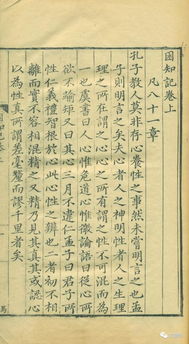 困知記卷上
凡八十一章
孔子教人莫非存心養性之事然未嘗明言之也孟
子則明言之矣夫心者人之神明性者人之生理
理之所在謂之心心之所有謂之性不可混而為
一也虞書曰人心惟危道心惟微論語曰從心所
欲不踰矩又曰其心三月不違仁孟子曰君子所
性仁義禮智根於心此心性之辨也二者初不相
離而實不容相混精之又精乃見其真其或認心
以為性真所謂差毫釐而謬千里者矣